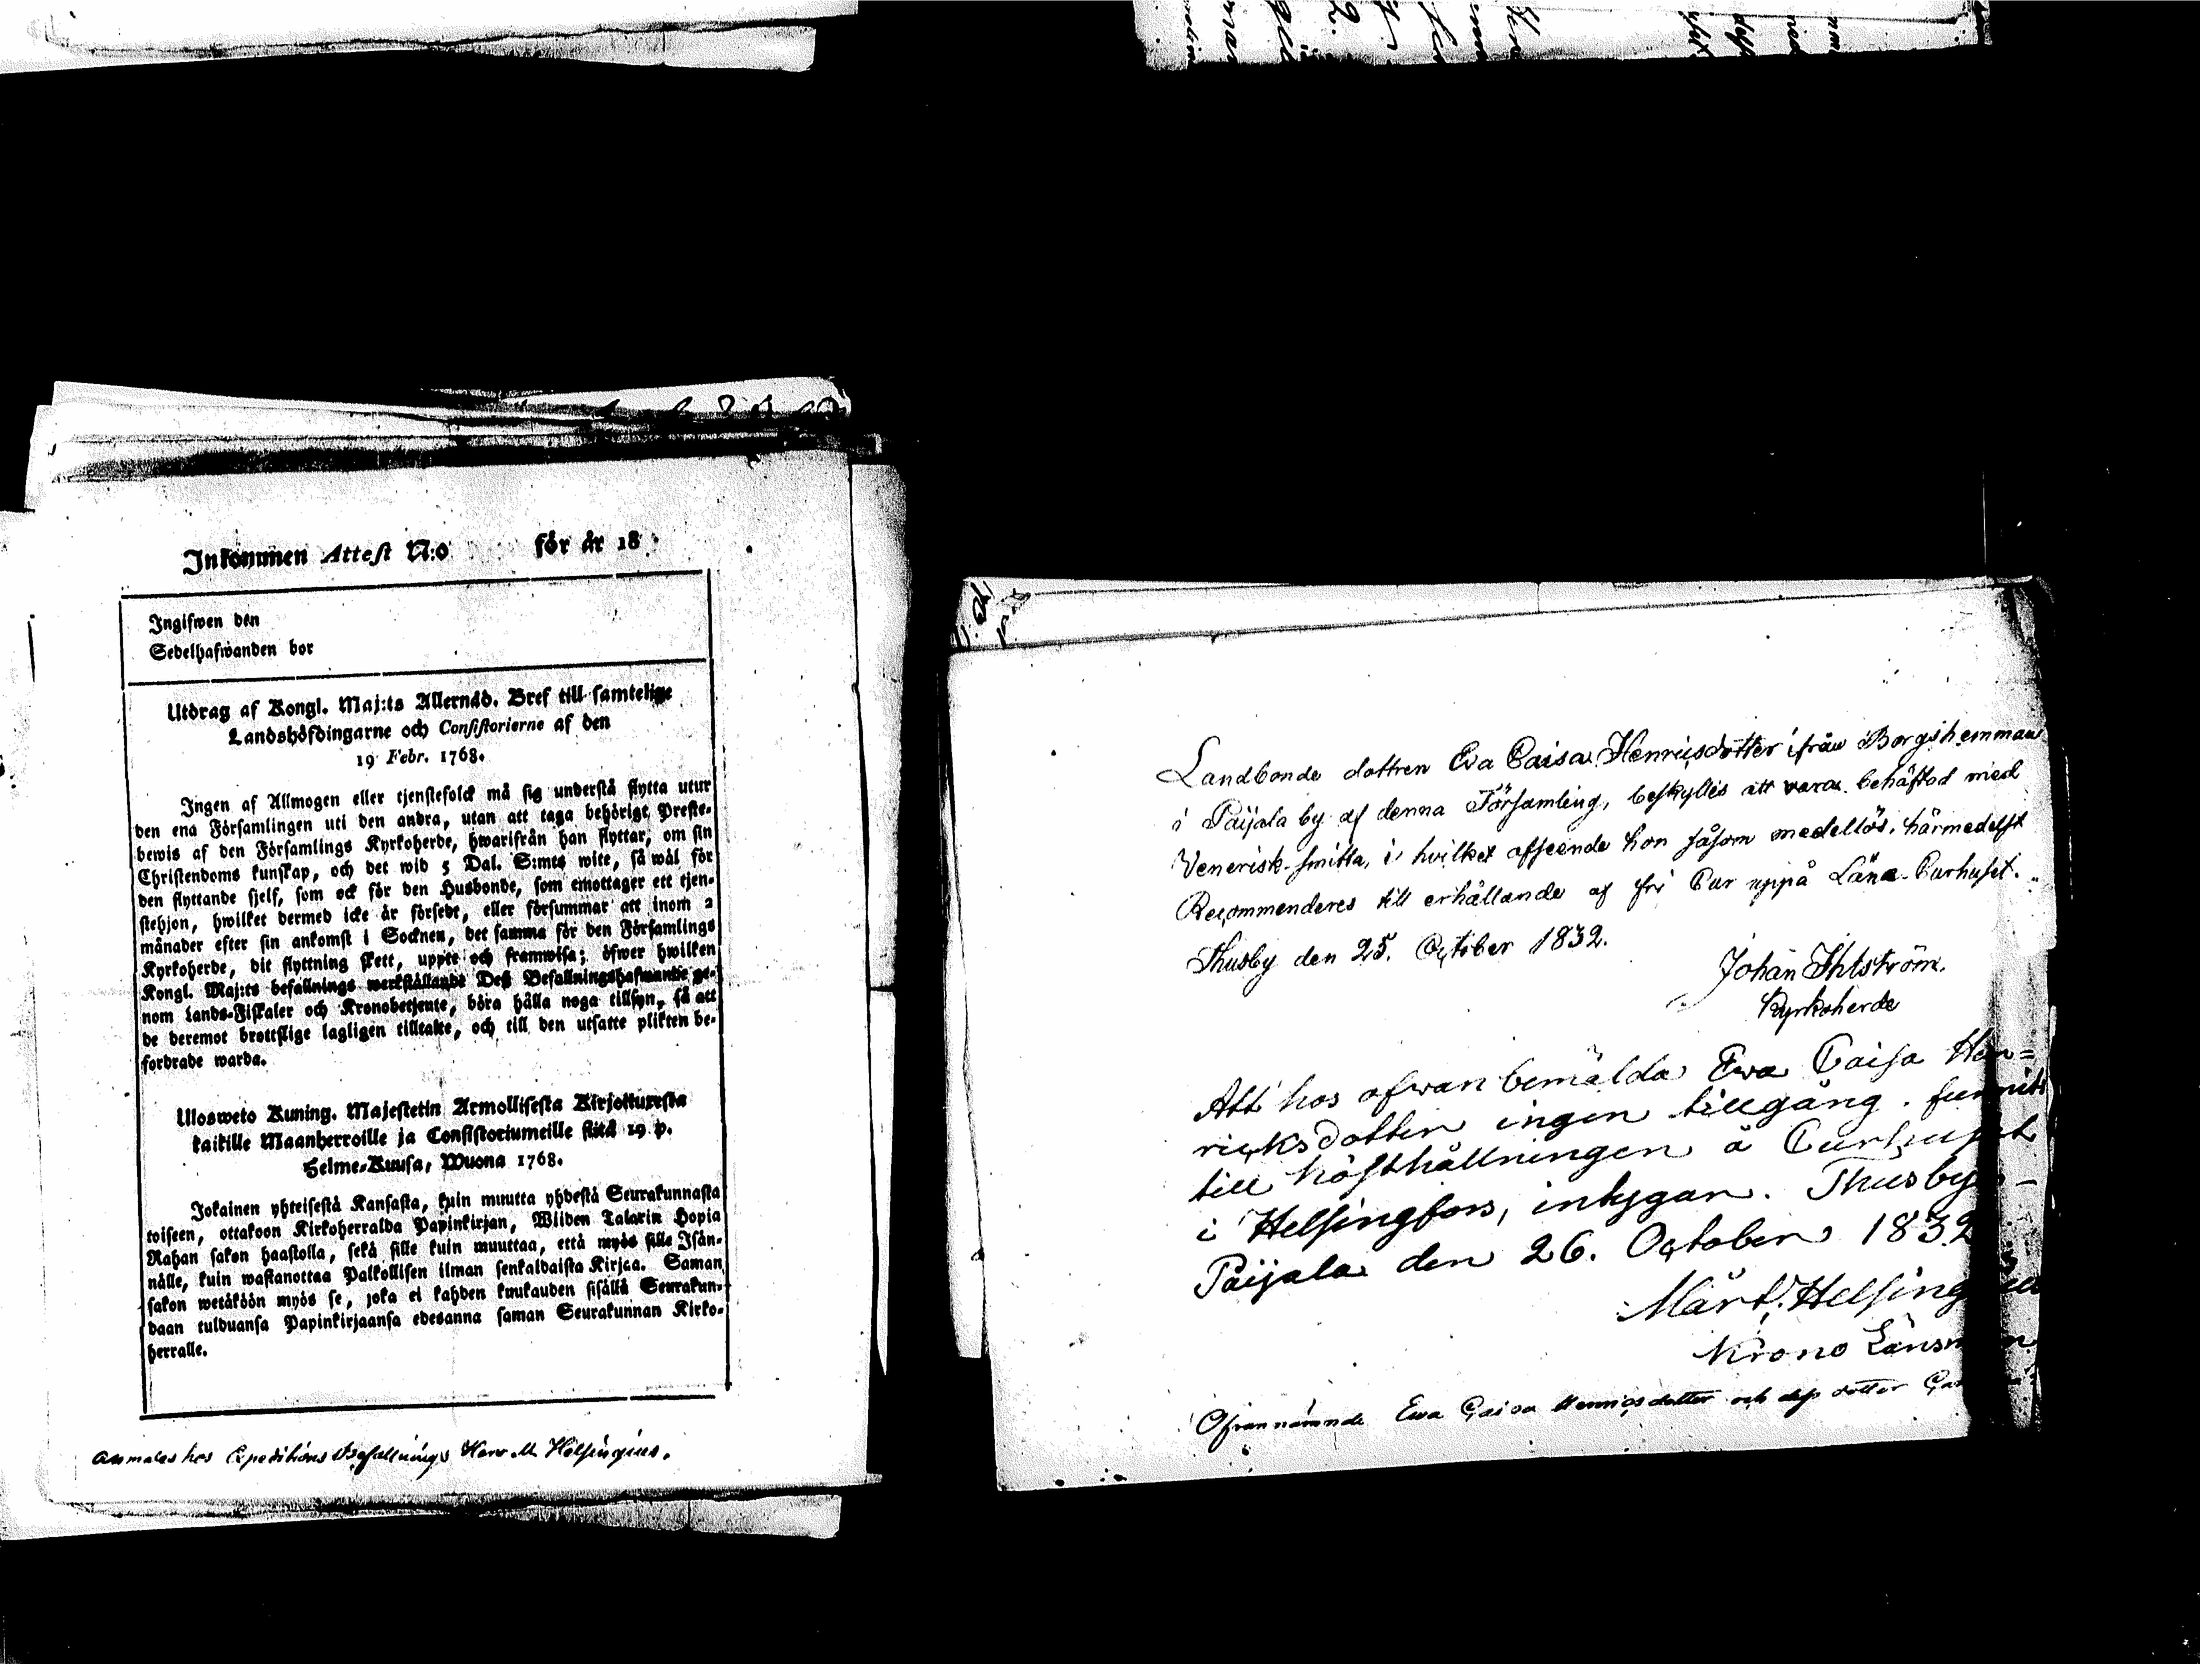 Inkommen Attest N:o för år 18
Ingifwen den
Sedelhafwanden bor
Utdrag af Kongl. Maj:ts Allernåd. Bref till samtelige
Landshöfdingarne och Consistorierne af den
19 Febr. 1768.
Ingen af Allmogen eller tjenstefolck må sig understå flytta utur
den ena Församlingen uti den andra, utan att taga behörigt Preste-
bewis af den Församlings Kyrkoherde, hwarifrån han flyttar, om sin
Christendoms kunskap, och det wid 5 Dal. S:mts wite, så wäl för
den flyttande sjelf, som ock för den Husbonde, som emottager ett tjen-
stehjon, hwilket dermed icke är försedt, eller försummar att inom 2
månader efter sin ankomst i Socknen, det samma för den Församlings
Kyrkoherde, dit flyttning skett, uppte och framwisa; öfwer hwilken
Kongl. Maj:ts befallnings werkställande Deß Befallningshafwande ge-
nom Lands-Fiskaler och Kronobetjente, böra hålla noga tillsyn, så att
de deremot brottslige lagligen tilltalte, och till den utsatte plikten be-
fordrade warda.
Ulosweto Kuning. Majestetin Armollisesta Kirjoituxesta
kaikille Maanherroille ja Consistoriumeille siitä 19 p.
Helme-Kuusa, Wuona 1768.
Jokainen yhteisestä Kansasta, kuin muutta yhdestä Seurakunnasta
toiseen, ottakoon Kirkoherralda Papinkirjan, Wiiden Talarin Hopia
Rahan sakon haastolla, sekä sille kuin muuttaa, että myös sille Isän-
nälle, kuin wastanottaa Palkollisen ilman senkaldaista Kirjaa. Saman
sakon wetäköön myös se, joka ei kahden kuukauden sisällä Seurakun-
daan tulduansa Papinkirjaansa edesanna saman Seurakunnan Kirko-
herralle.
anmäles hos Expeditions Befallnings Herr M Helsingius.
Landbonde dottren Eva Caisa Henricsdotter ifrån Borgs hemman
i Paijala by af denna Församling, beskylles att vara behäftad med
Venerisk smitta, i hvilket afseende hon såsom medellös, härmedelst
Recommenderes till erhållande af fri Cur uppå Läns-Curhuset.
Thusby den 25. October 1832.
Johan Ihlström.
Kyrkoherde
Att hos ofwanbemälda Ewa Caisa Hen=
ricksdotter ingen tillgång
till kosthållningen å Curhuset
i Helsingfors, intygar. Thusby
Paijala den 26. October 1832
Mårt. Helsing
Krono Länsman
Ofvannämnde Ewa Caisa Henricsdotter och dess dotter